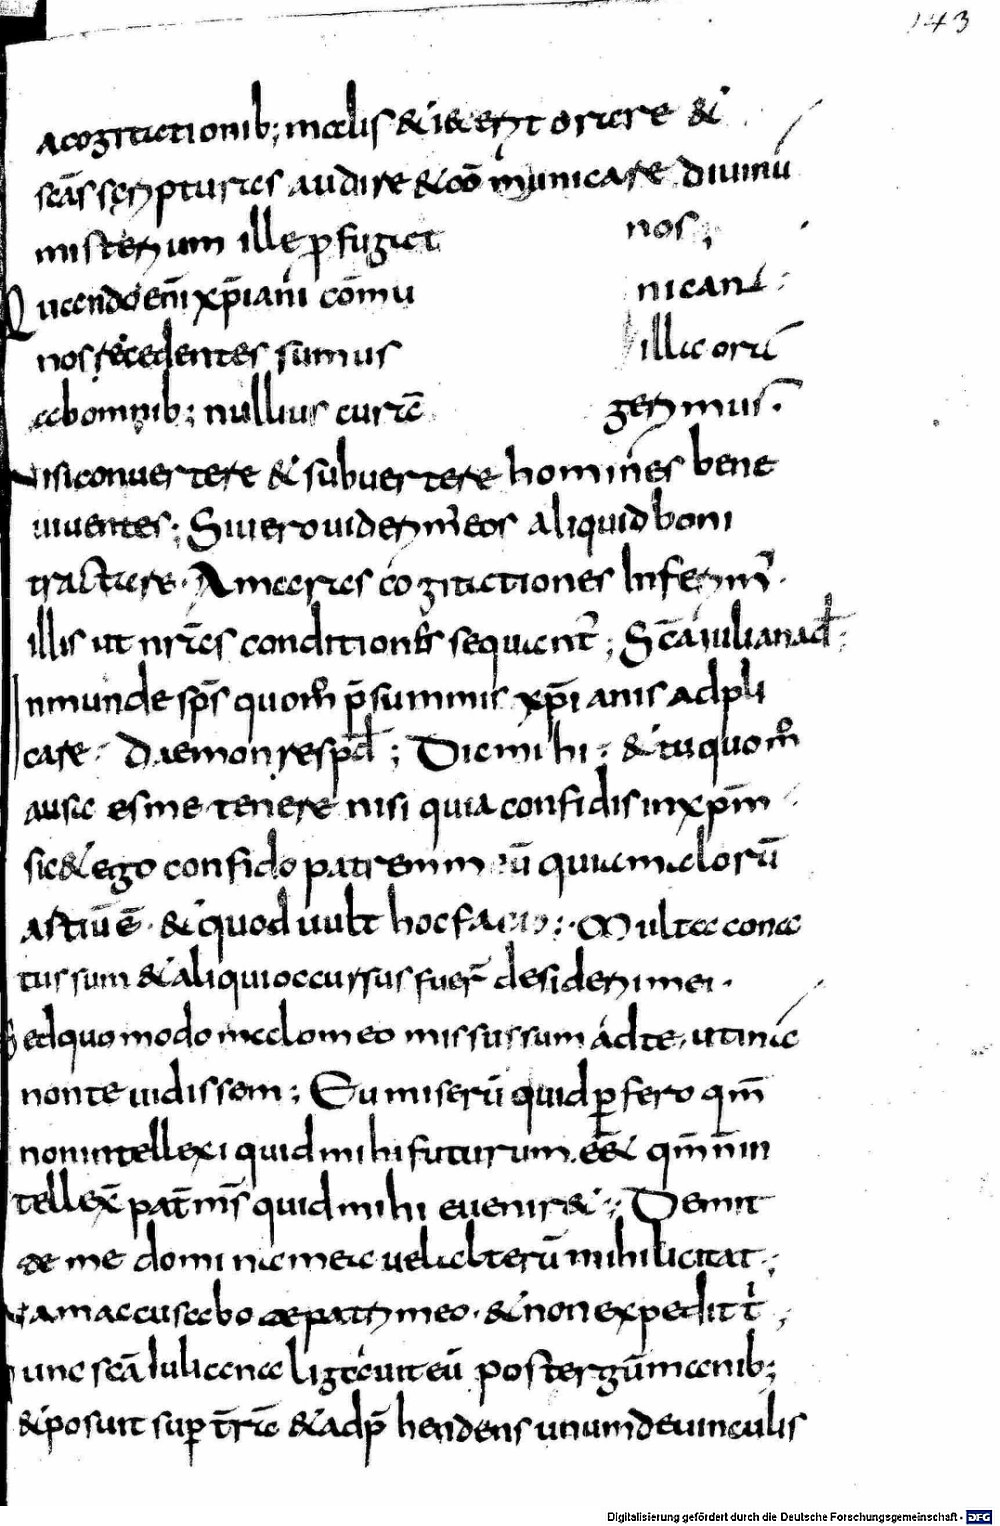 143
a cogitationib; malis & ib& & in orare &
scās scripturas audire & cōmunicare diuinū
misterium ille p fugiat nos;
uicendo enī xpīani cōmu nicant
nos recedentes sumus illa orū
ab omnib; nullius curā gerimus.
Nisi conuertere & subuertere homines bene
uiuentes; Si uero uiderim̄ eos aliquid boni
tractare. Amaras cogitationes Inferim̄.
illis ut nrās conditionēs sequant̄; Scā iuliana d̄;
nmunde sp̄s quom̊ p̄summis xp̄ianis adpli
care. Daemon resp̄d; Dic mihi; & tu quom̊
ausa es me tenere nisi quia confidis in xp̄m
sic & ego confido patrem m ū quia malorū
astiū ē. & quod uult hoc facio; Multa cona
tus sum & aliqui occursus fuer̄ desiderii mei.
Sed quomodo malo meo missus sum ad te, utinā
non te uidissem; Eu miserū quid pfero qm̄
non intellexi quid mihi futurum. ēē& qm̄ n̄ in
tellex̄ pat̄ ms̄ quid mihi euenir&; Demit
te me domina mea uel alterū mihi licitat;
Nam accusabo te patri meo. & non expedit t̄;
Tunc scā Iuliana ligauit eū post tergū manib;
& posuit sup t̄rā & adp̄hendens unum de uinculis
Digitalisierung gefördert durch die Deutsche Forschungsgemeinschaft - DFG